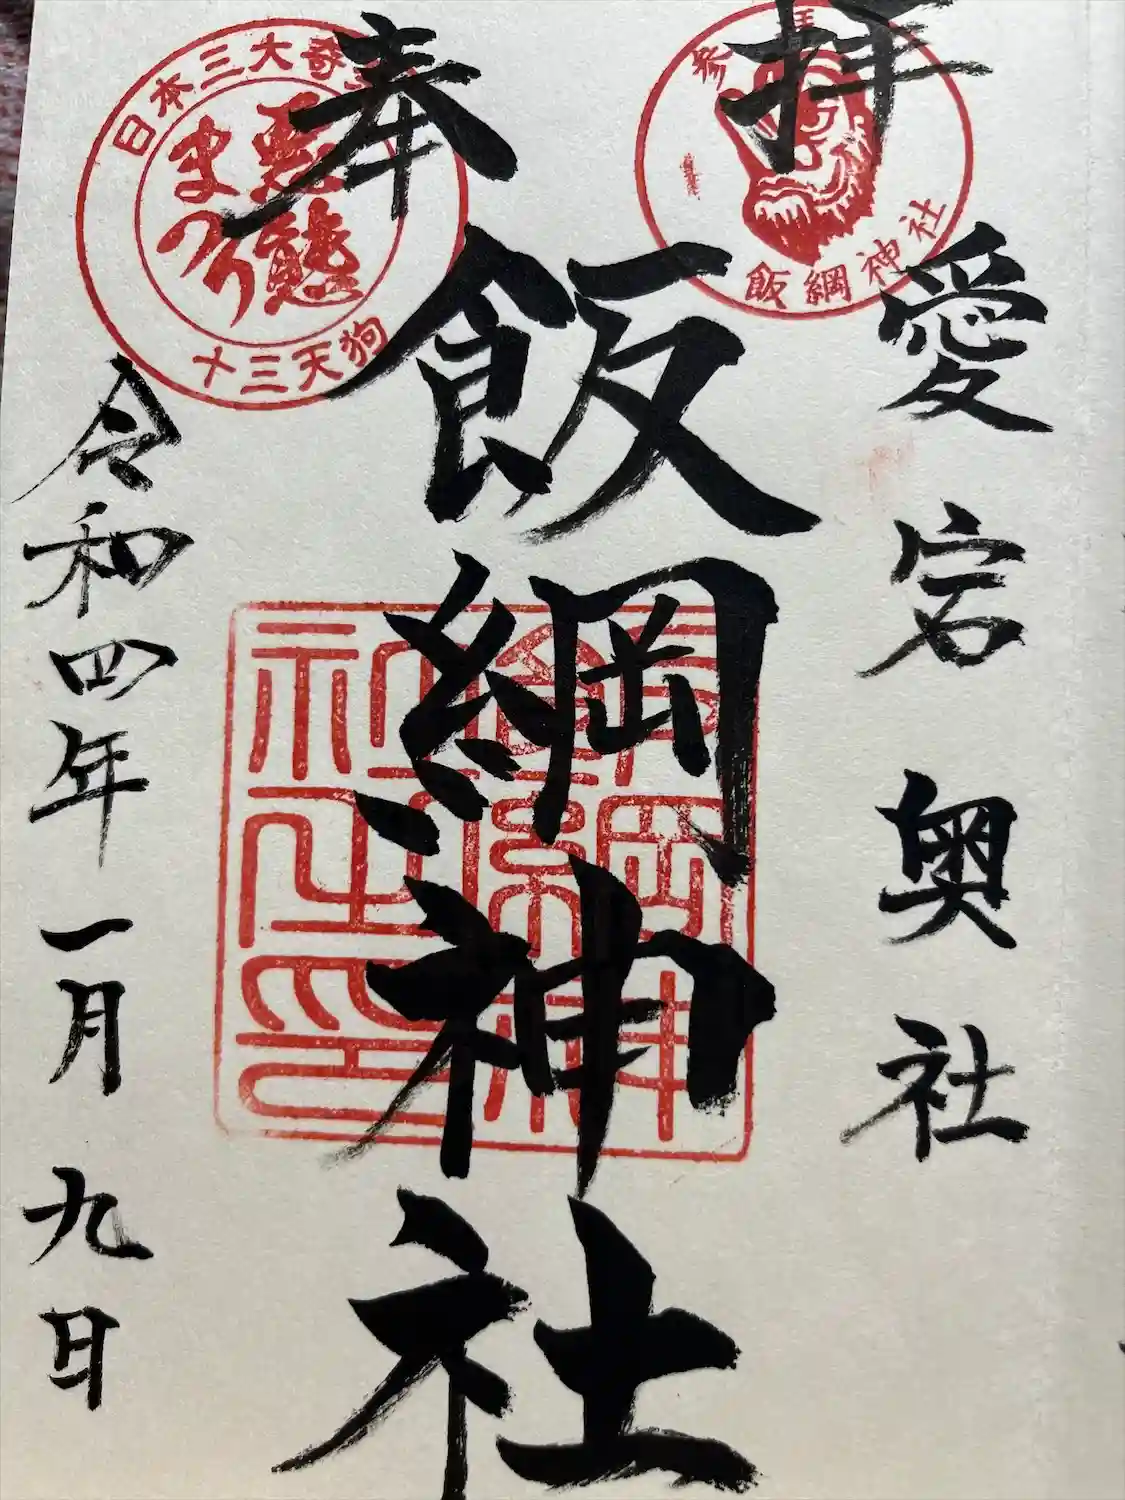 奉拝
参拝
飯綱神社
愛宕奥社
飯綱神社
飯綱神
社之印
日本三大奇祭
悪態
まつり
十三天狗
令和四年一月九日